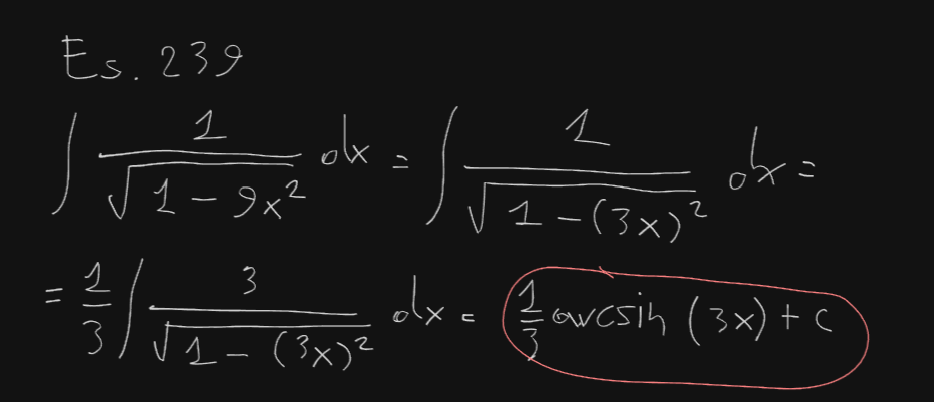 Es. 239
∫ 1/√(1 - 9x²) dx = ∫ 1/√(1 - (3x)²) dx =
= 1/3 ∫ 3/√(1 - (3x)²) dx = 1/3 arcsin (3x) + c